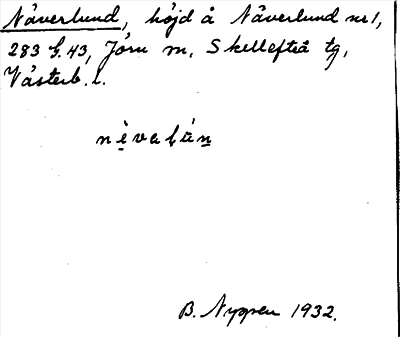 Näverlund, höjd å Näverlund nr 1,
283 G. 43, Jörn m. Skellefteå tg,
Västerb. l.
B. Nygren 1932.